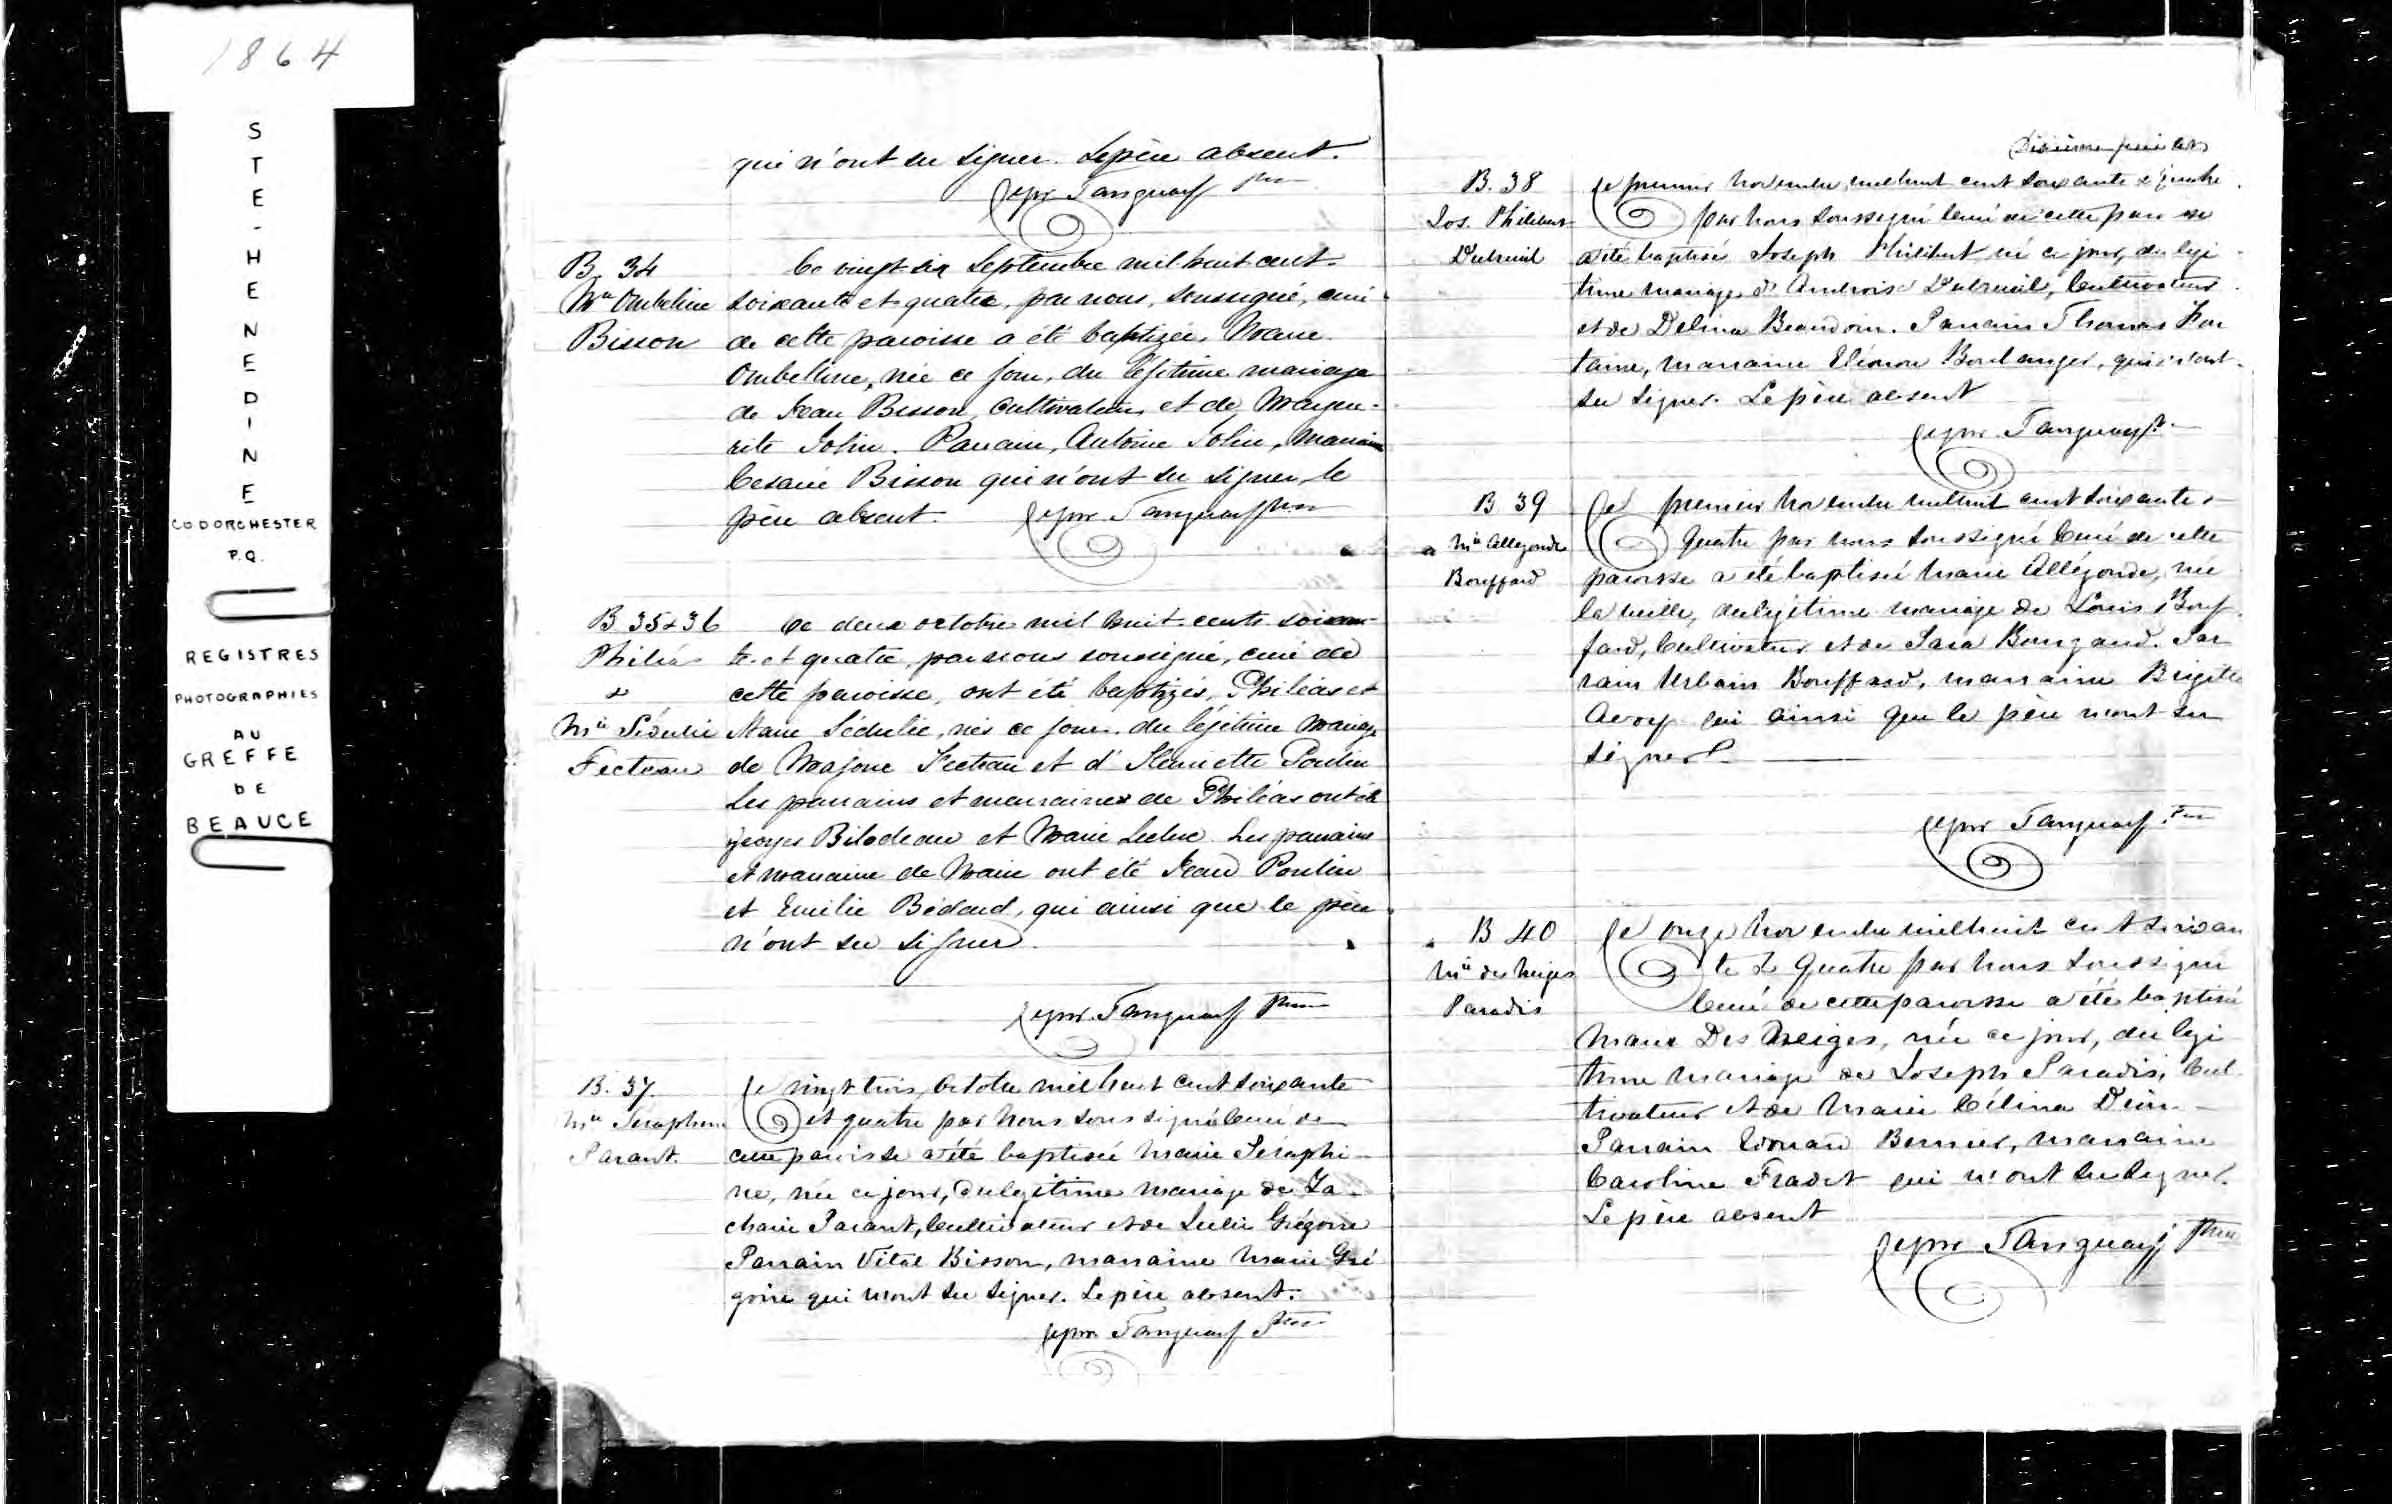 1864
STE-HENEDINE
CO DORCHESTER
P.Q.
REGISTRES
PHOTOGRAPHIES
AU
GREFFE
DE
BEAUCE
qui n'ont su signer. Le père absent.
Tanguay Ptre
B. 34
Mie Ombeline
Bisson
Ce vingt six Septembre mil huit cent
soixante et quatre, par nous, soussigné, curé
de cette paroisse a été baptizée, Marie
Ombeline, née ce jour, du légitime mariage
de Jean Bisson, cultivateur, et de Margue-
rite Jolin. Parrain, Antoine Jolin, Marraine
Césarie Bisson qui n'ont su signer, le
père absent. Tanguay Ptre
B 35 & 36
Philéas
&
Mie Sédulie
Fecteau
Ce deux octobre mil huit cents soixan-
te et quatre, par nous soussigné, curé de
cette paroisse, ont été baptizés, Philéas et
Marie Sédulie, nés ce jour, du légitime mariage
de Majoric Fecteau et d'Henriette Poulin
Les parrains et marraines de Philéas ont été
Georges Bilodeau et Marie Leclerc. Les parrains
et marraine de Marie ont été Jean Poulin
et Emélie Bédard, qui ainsi que le père
n'ont su signer.
Tanguay Ptre
B. 37.
Mie Séraphine
Parant.
Le vingt trois Octobre mil huit cent soixante
et quatre par Nous soussigné Curé de
cette paroisse a été baptisée Marie Séraphi-
ne, née ce jour, du légitime mariage de Za-
charie Parant, Cultivateur et de Julie Grégoire
Parrain Vital Bisson, marraine Marie Gré
goire qui n'ont su signer. Le père absent.
Tanguay Ptre
B. 38
Jos. Philibert
Dubreuil
Le premier Novembre mil huit cent soixante et quatre
par Nous soussigné Curé de cette paroisse
a été baptisé Joseph Philibert né ce jour, du légi
time mariage d'Ambroise Dubreuil, Cultivateur
et de Delina Beaudoin. Parrain Thomas Fon
taine, marraine Eléonore Boulanger, qui n'ont
su signer. Le père absent
Tanguay Ptre
B 39
Mie Allégonde
Bouffard
Le premier Novembre mil huit cent soixante &
Quatre par nous soussigné Curé de cette
paroisse a été baptisée Marie Allégonde, née
la veille, du légitime mariage de Louis Bouf
fard, Cultivateur et de Sara. Par
rain Urbain Bouffard, marraine Brigite
qui ainsi que le père n'ont su
signer
Tanguay Ptre
B 40
Mie des Neiges
Paradis
Le onze Novembre mil huit cent soixan
te & Quatre par Nous soussigné
Curé de cette paroisse a été baptisée
Marie Des Neiges, née ce jour, du légi
time mariage de Joseph Paradis, Cul
tivateur et de Marie Célina Dion.
Parrain Edouard Bernier, marraine
Caroline Fradet qui n'ont su signer.
Le père absent
Tanguay Ptre